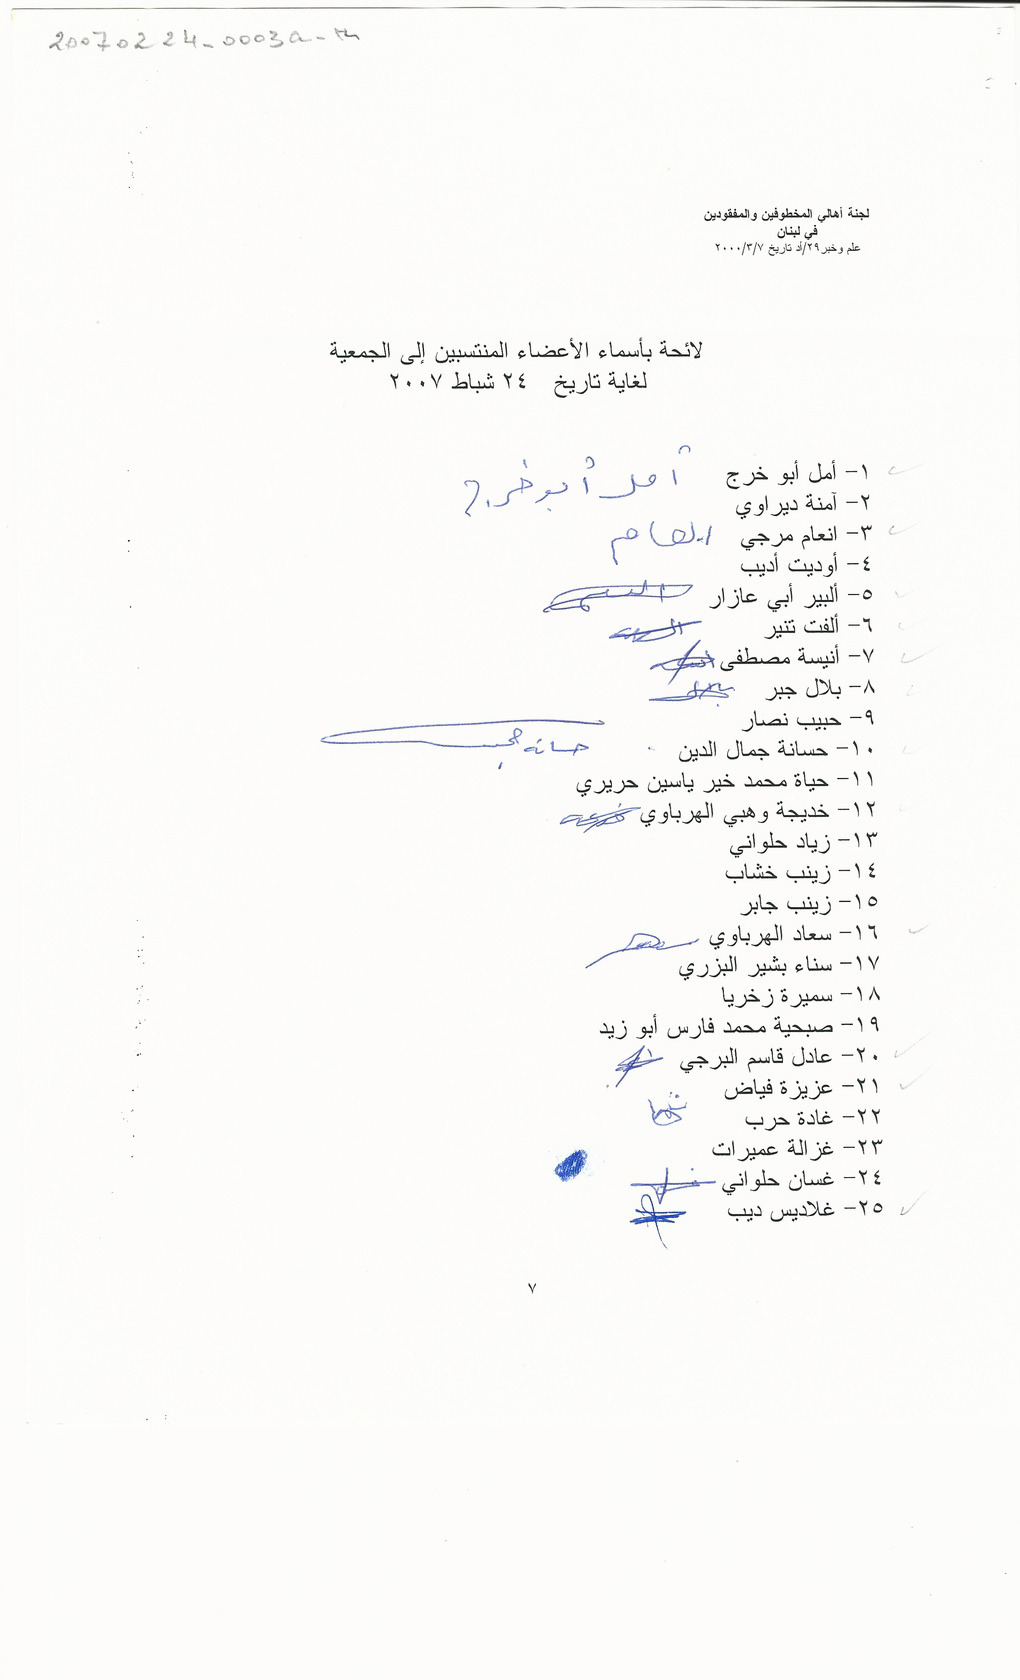 20070224-0003a-m
لجنة أهالي المخطوفين والمفقودين
في لبنان
علم وخبر ٢٩/أد تاريخ ٢٠٠٠/٣/٧
لائحة بأسماء الأعضاء المنتسبين إلى الجمعية
لغاية تاريخ ٢٤ شباط ٢٠٠٧
١- أمل أبو خرج أمل أبو خرج
٢- آمنة ديراوي
٣- انعام مرجي انعام
٤- أوديت أديب
٥- ألبير أبي عازار
٦- ألفت تنير
٧- أنيسة مصطفى
٨- بلال جبر
٩- حبيب نصار
١٠- حسانة جمال الدين حسانة
١١- حياة محمد خير ياسين حريري
١٢- خديجة وهبي الهرباوي
١٣- زياد حلواني
١٤- زينب خشاب
١٥- زينب جابر
١٦- سعاد الهرباوي
١٧- سناء بشير البزري
١٨- سميرة زخريا
١٩- صبحية محمد فارس أبو زيد
٢٠- عادل قاسم البرجي
٢١- عزيزة فياض
٢٢- غادة حرب
٢٣- غزالة عميرات
٢٤- غسان حلواني
٢٥- غلاديس ديب
٧